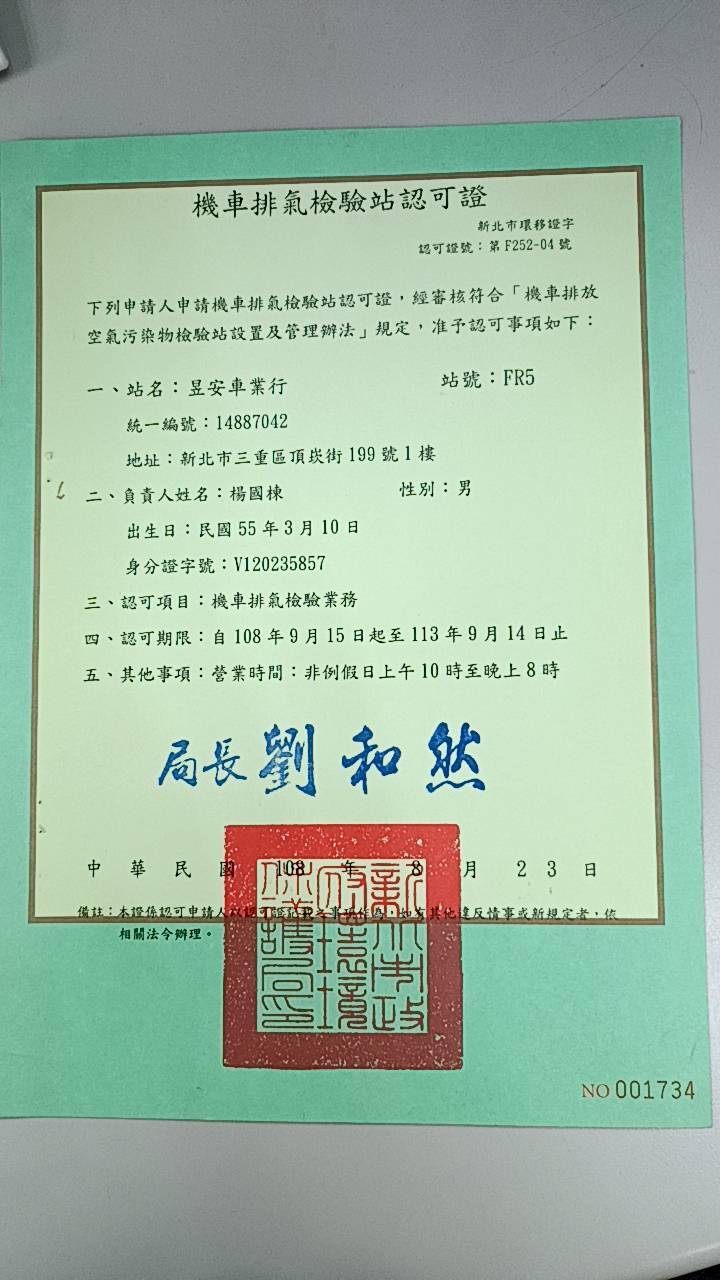 機車排氣檢驗站認可證
新北市環移證字
認可證號：第F252-04號
下列申請人申請機車排氣檢驗站認可證，經審核符合「機車排放
空氣污染物檢驗站設置及管理辦法」規定，准予認可事項如下：
一、站名：昱安車業行 站號：FR5
統一編號：14887042
地址：新北市三重區頂崁街199號1樓
二、負責人姓名：楊國棟 性別：男
出生日：民國55年3月10日
身分證字號：V120235857
三、認可項目：機車排氣檢驗業務
四、認可期限：自108年9月15日起至113年9月14日止
五、其他事項：營業時間：非例假日上午10時至晚上8時
局長 劉和然
中華民國 108 年 8 月 23 日
新北市政府環境保護局印
備註：本證係認可申請人以認可證記載之事項作為，如有其他違反情事或新規定者，依
相關法令辦理。
NO 001734